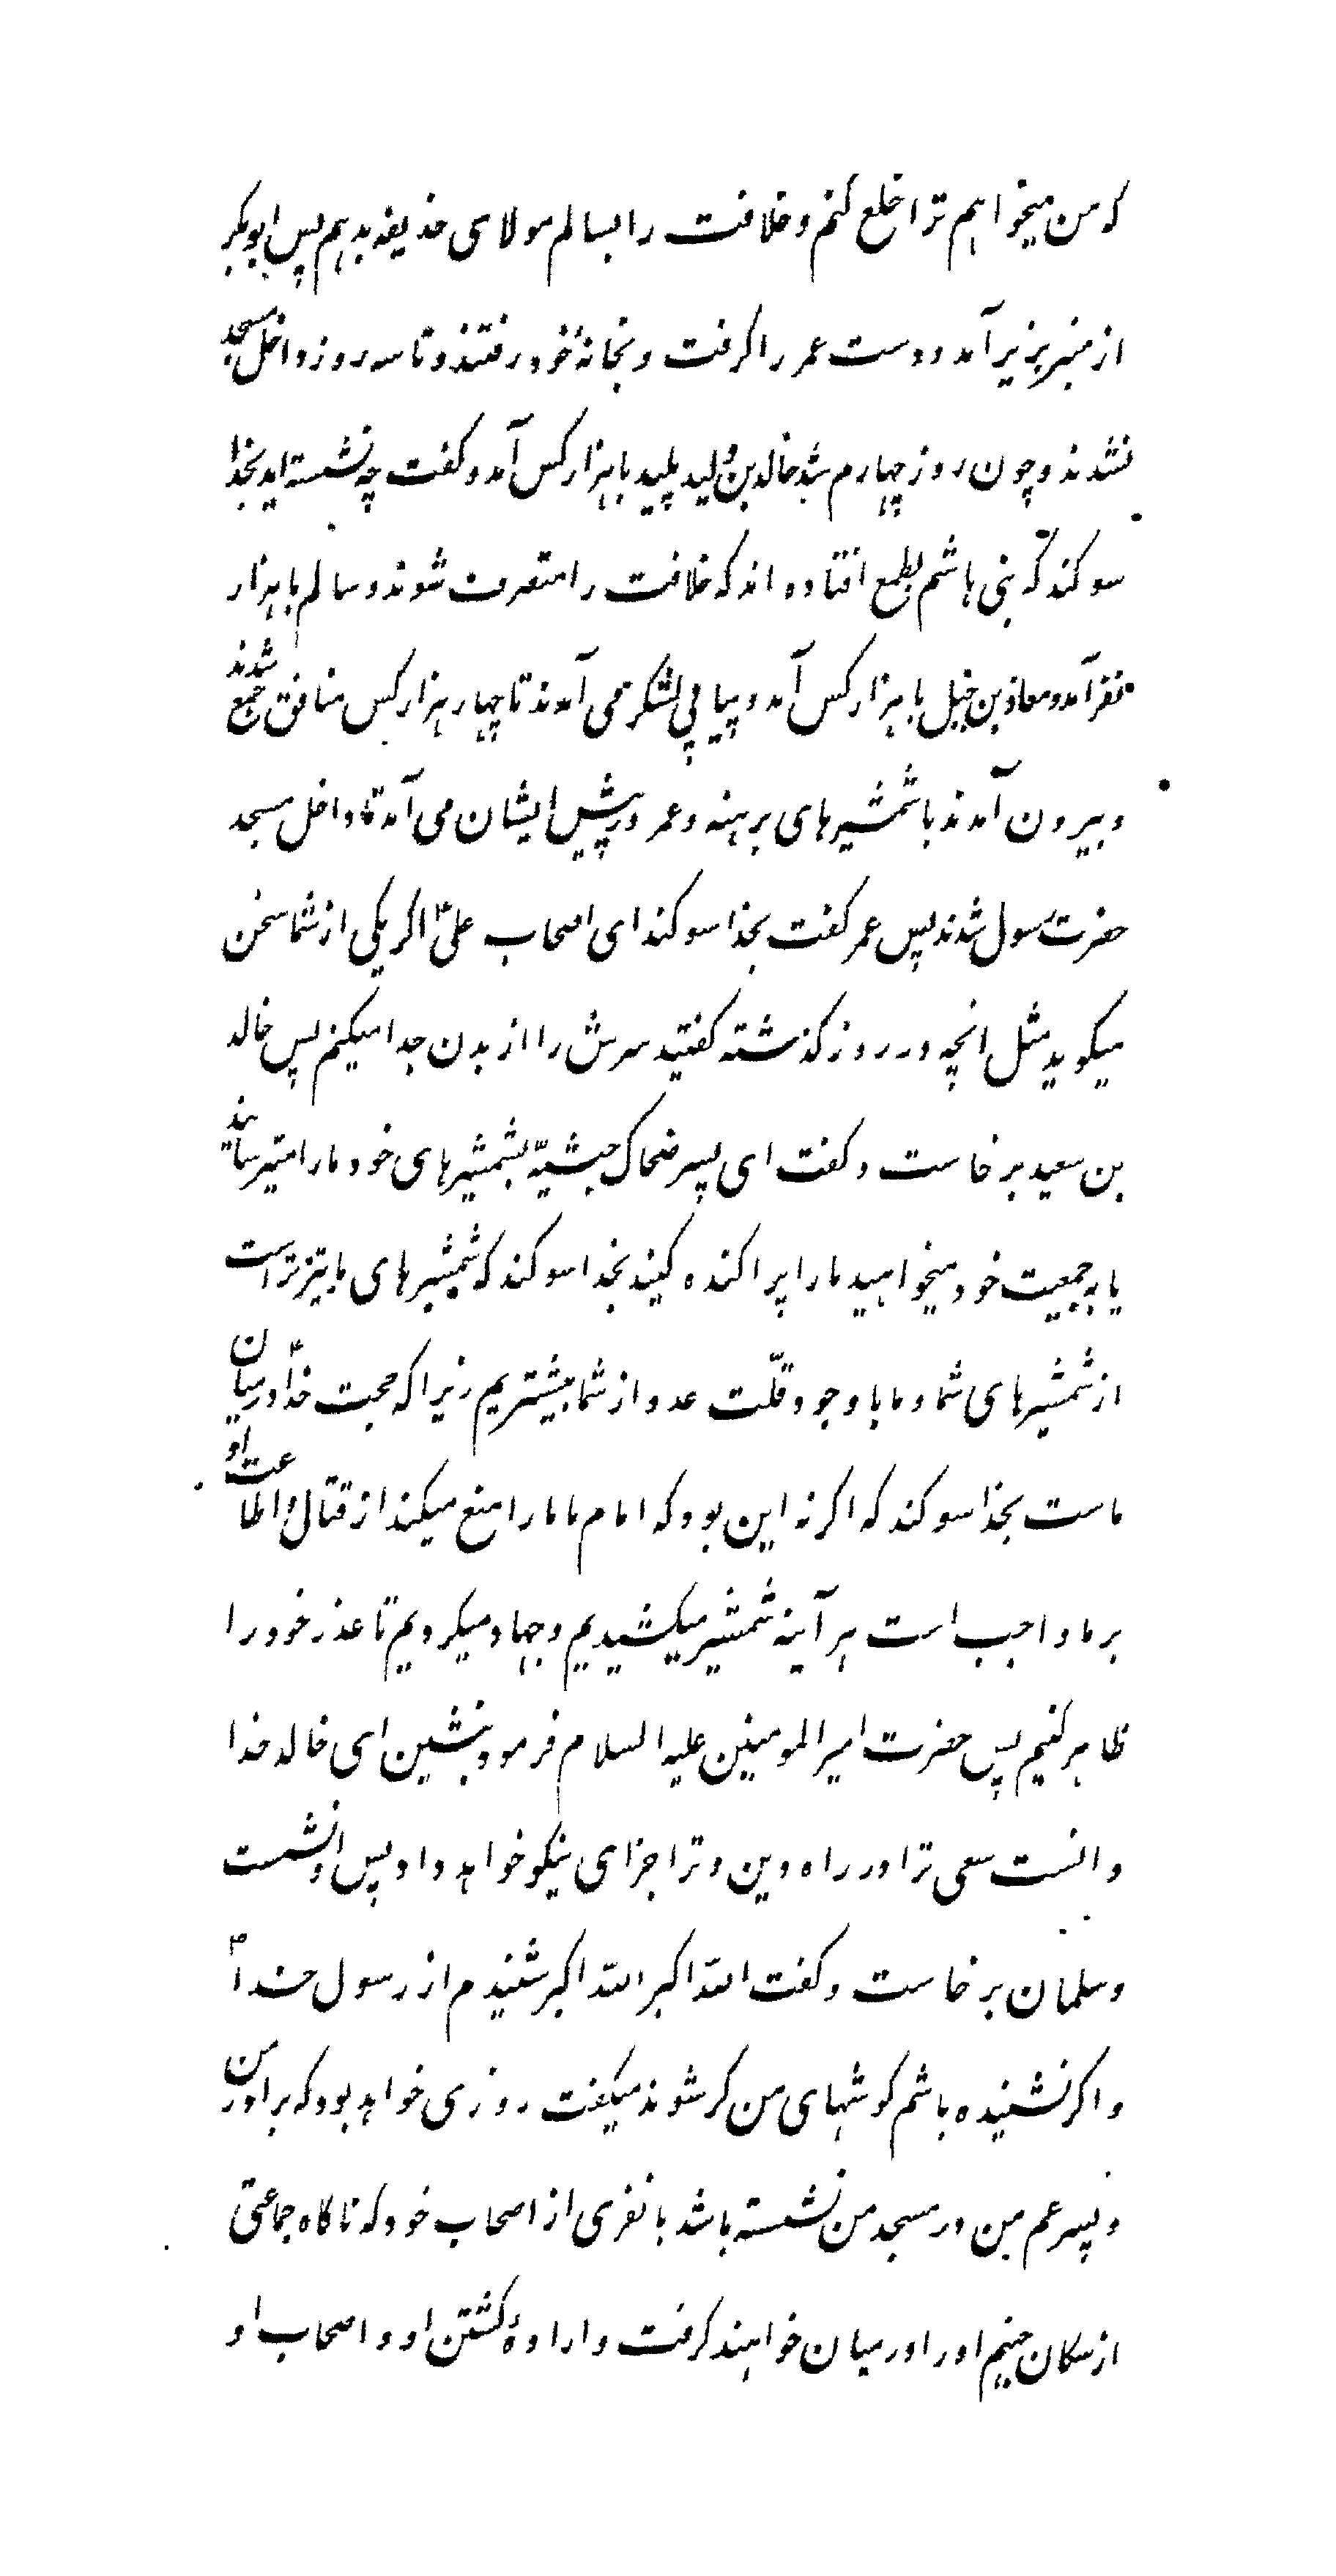 که من میخواهم ترا خلع کنم و خلافت را بسالم مولای حذیفه بدهم پس ابوبکر
از منبر بزیر آمد و دست عمر را گرفت و بخانهٔ خود رفتند و تا سه روز داخل مسجد
نشدند و چون روز چهارم شد خالد بن ولید پلید با هزار کس آمد و گفت چه نشسته‌اید بخدا
سوگند که بنی هاشم بطمع افتاده اند که خلافت را متصرف شوند و سالم با هزار
نفر آمد و معاذ بن جبل با هزار کس آمد و پیاپی لشکر می آمدند تا چهار هزار کس منافق جمع شدند
و بیرون آمدند با شمشیرهای برهنه و عمر در پیش ایشان می آمد تا داخل مسجد
حضرت رسول شدند پس عمر گفت بخدا سوگند ای اصحاب علیؑ اگر یکی از شما سخن
میگوید مثل انچه در روز گذشته گفتید سرش را از بدن جدا میکنم پس خالد
بن سعید بر خاست و گفت ای پسر ضحاک حبشیّه بشمشیرهای خود ما را میترسانید
یا بجمعیت خود میخواهید ما را پراکنده کنید بخدا سوگند که شمشیرهای ما تیزتر است
از شمشیرهای شما و ما با وجود قلّت عدد از شما بیشتریم زیرا که حجت خدا در میان
ماست بخدا سوگند که اگر نه این بود که امام ما ما را منع میکند از قتال و اطاعت او
بر ما واجب است هر آینه شمشیر میکشیدیم و جهاد میکردیم تا عذر خود را
ظاهر کنیم پس حضرت امیرالمومنین علیه السلام فرمود بنشین ای خالد خدا
دانست سعی ترا در راه دین و ترا جزای نیکو خواهد داد پس او نشست
و سلمان بر خاست و گفت اللّه اکبر اللّه اکبر شنیدم از رسول خداؐ
و اگر نشنیده باشم گوشهای من کر شوند میگفت روزی خواهد بود که برادر من
و پسر عم من در مسجد من نشسته باشد با نفری از اصحاب خود که ناگاه جماعتی
از سگان جهنم او را در میان خواهند گرفت و ارادهٔ کشتن او و اصحاب او